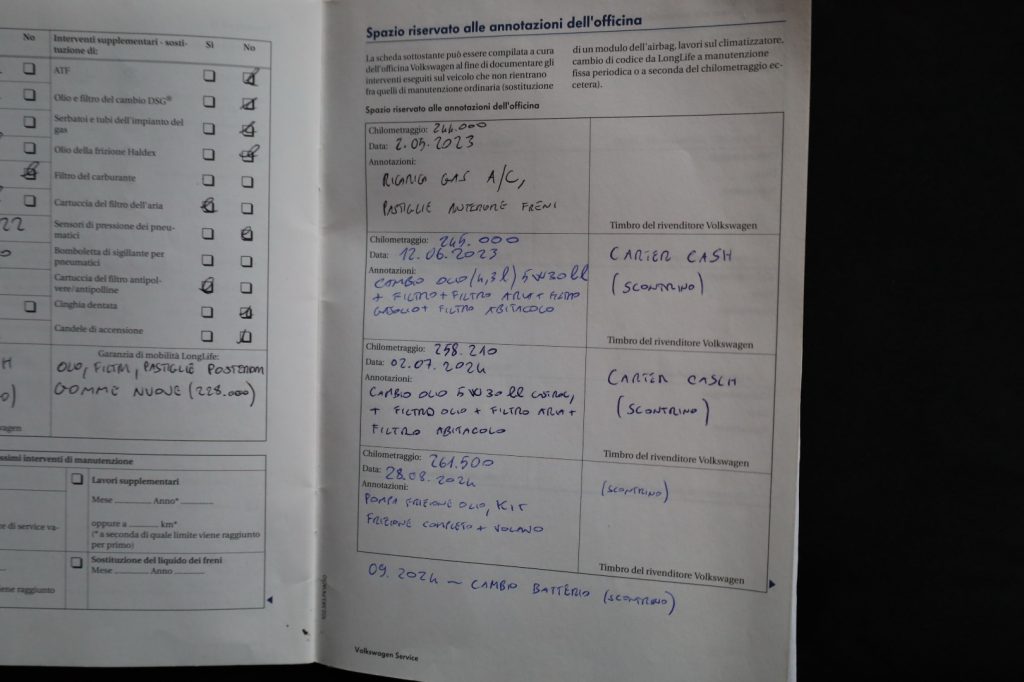 No
Interventi supplementari - sosti-
tuzione di:
Sì
No
ATF
Olio e filtro del cambio DSG®
Serbatoi e tubi dell'impianto del
gas
Olio della frizione Haldex
Filtro del carburante
Cartuccia del filtro dell'aria
Sensori di pressione dei pneu-
matici
Bomboletta di sigillante per
pneumatici
Cartuccia del filtro antipol-
vere/antipolline
Cinghia dentata
Candele di accensione
Garanzia di mobilità LongLife:
OLIO, FILTRI, PASTIGLIE POSTERIORI
GOMME NUOVE (228.000)
ssimi interventi di manutenzione
Lavori supplementari
Mese Anno*
oppure a km*
(* a seconda di quale limite viene raggiunto
per primo)
Sostituzione del liquido dei freni
Mese Anno
e di service va-
iene raggiunto
Spazio riservato alle annotazioni dell'officina
La scheda sottostante può essere compilata a cura
dell'officina Volkswagen al fine di documentare gli
interventi eseguiti sul veicolo che non rientrano
fra quelli di manutenzione ordinaria (sostituzione
di un modulo dell'airbag, lavori sul climatizzatore,
cambio di codice da LongLife a manutenzione
fissa periodica o a seconda del chilometraggio ec-
cetera).
Spazio riservato alle annotazioni dell'officina
Chilometraggio: 244.000
Data: 2.05.2023
Annotazioni:
RICARICA GAS A/C,
PASTIGLIE ANTERIORE FRENI
Timbro del rivenditore Volkswagen
Chilometraggio: 245.000
Data: 12.06.2023
Annotazioni:
CAMBIO OLIO (4,3l) 5W30 ll
+ FILTRO + FILTRO ARIA + FILTRO
GASOLIO + FILTRO ABITACOLO
CARTER CASH
(SCONTRINO)
Timbro del rivenditore Volkswagen
Chilometraggio: 258.210
Data: 02.07.2024
Annotazioni:
CAMBIO OLIO 5W30 ll CASTROL,
+ FILTRO OLIO + FILTRO ARIA +
FILTRO ABITACOLO
CARTER CASCH
(SCONTRINO)
Timbro del rivenditore Volkswagen
Chilometraggio: 261.500
Data: 28.08.2024
Annotazioni:
POMPA FRIZIONE OLIO, KIT
FRIZIONE COMPLETO + VOLANO
(SCONTRINO)
Timbro del rivenditore Volkswagen
09.2024 ~ CAMBIO BATTERIO (SCONTRINO)
Volkswagen Service